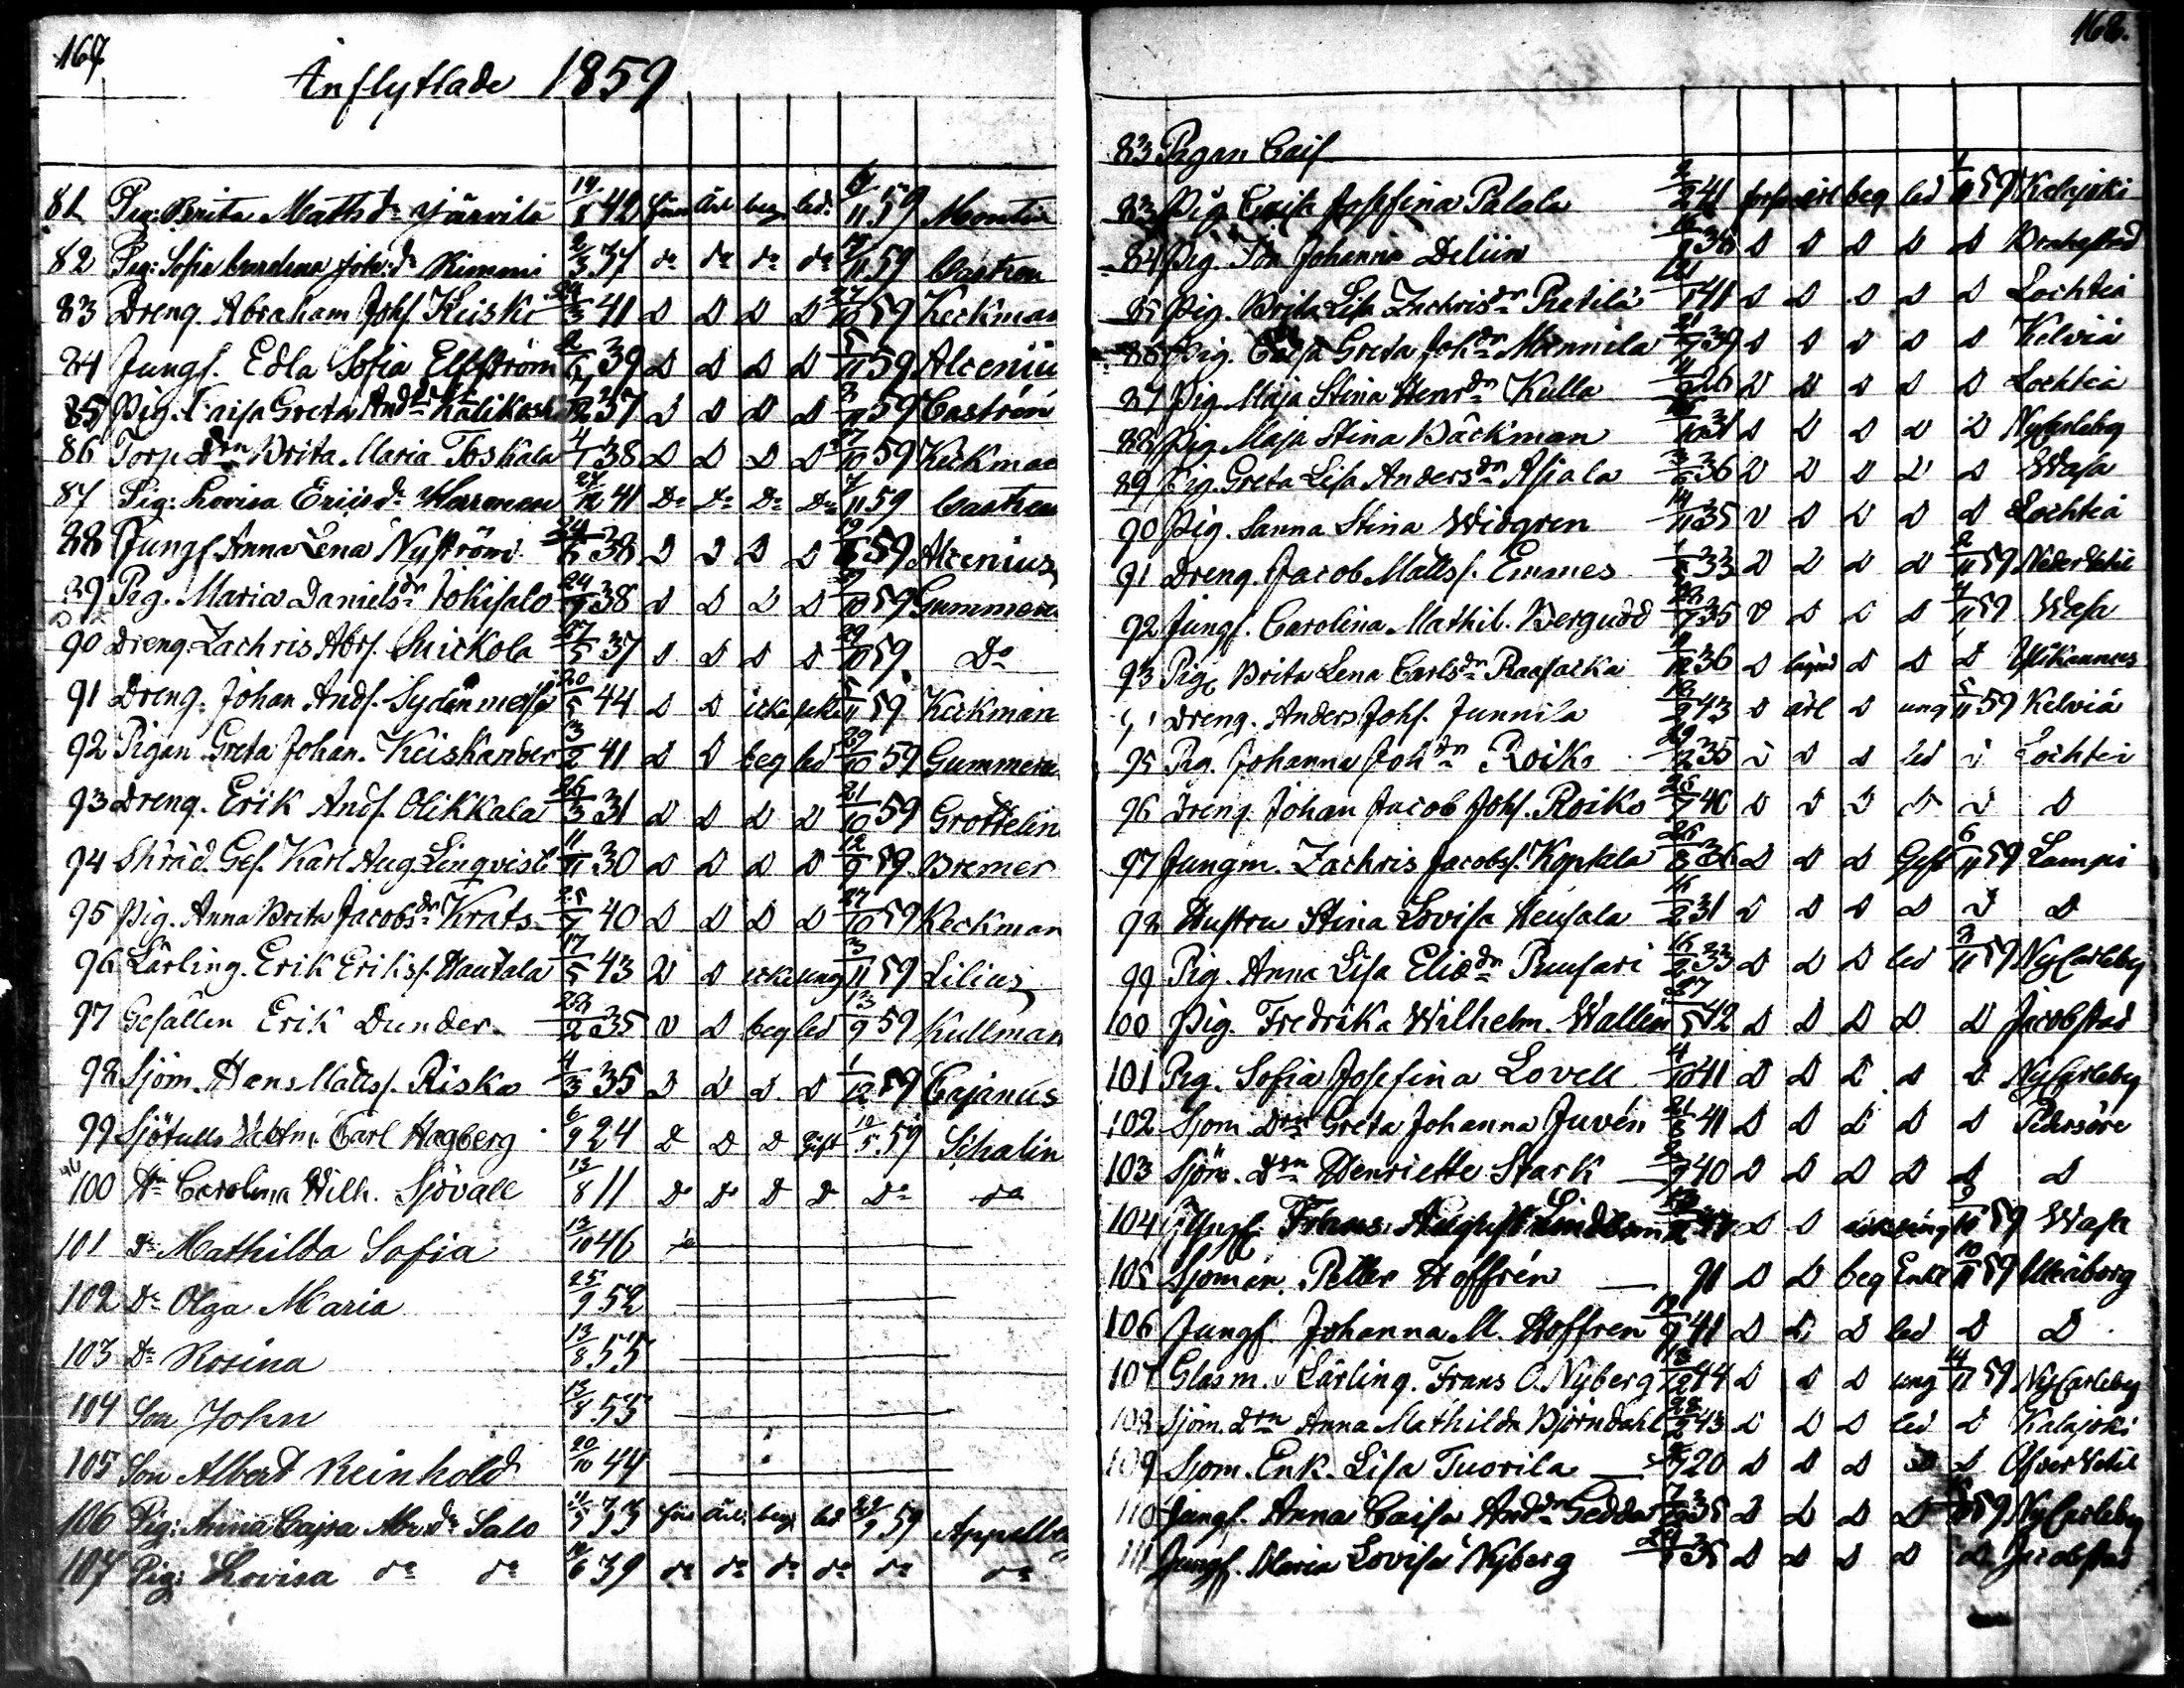 167
Inflyttade 1859
81 Pig: Brita Matts dr Järvilä 14/8 42 förs ärl beg led. 6/11 59 Montin
82 Pig: Sofia Carolina Joh: dr Rimmi 2/3 37 do do do do 17/11 59 Castren
83 Dreng. Abraham Johs. Keisko 24/3 41 D D D D 27/10 59 Keckman
84 Jungf. Edla Sofia Elfström 2/6 39 D D D D 5/11 59 Alceniu
85 Pig. Caisa Greta And dr Kalikoski /12 37 D D D D /11 59 Castrén
86 Torp. drn Brita Maria Toskala 4/1 38 D D D D 27/10 59 Keckman
87 Pig: Lovisa Erics dr Herronen 27/12 41 Do Do Do Do 7/11 59 Castren
88 Jungf Anna Lena Nyström 24/8 38 D D D D 19/ 59 Alcenius
89 Pig. Maria Daniels dr Jokisalo 24/9 38 D D D D /10 59 Gummeru
90 Dreng. Zachris Abrs. Huickola 27/5 37 D D D D 29/10 59 Do
91 Dreng. Johan Ands. Sydänmetsä 20/5 44 D D icke icke 5/11 59 Keckman
92 Pigan Greta Johan. Keiskander 13/2 41 D D beg led 29/10 59 Gummeru
93 Dreng. Erik Ands. Olikkala 26/3 31 D D D D 21/10 59 Grottelin
94 Skräd. Ges. Karl Aug. Linqvist 11/11 30 D D D D 12/9 59 Bremer
95 Pig. Anna Brita Jacobs dr Krats 25/7 40 D D D D 27/10 59 Keckman
96 Lärling. Erik Eriks s. Hautala 17/5 43 D D icke ung 3/11 59 Lilius
97 Gesällen Erik Dunder 28/2 35 D D beg led 13/9 59 Kullman
98 Sjöm. Hans Matts s. Risko 4/3 35 D D D D 1/12 59 Cajanus
99 Sjötulls Vaktm. Carl Hagberg 6/9 24 D D D Gift 10/5 59 Schalin
100 Hu Carolina Wilh. Sjövall 13/8 11 Do Do D D Do do
101 Dr Mathilda Sofia 13/10 46
102 Dr Olga Maria 25/9 52
103 Dr Rosina 13/8 55
104 Son John 13/8 55
105 Son Albert Reinhold 20/10 44
106 Pig: Anna Cajsa Abr dr Salo 11/5 33 förs ärl: beg led /9 59 Appelberg
107 Pig: Lovisa do do 12/6 39 do do do do do do
168.
83 Pigan Cais
83 Pig. Caisa Josefina Palola 2/2 41 förs ärl beg led 1/11 59 Kalajoki
84 Pig. Ida Johanna Deliin 16/9 38 D D D D D Brahestad
85 Pig. Brita Lisa Zachris dr Pietilä 21/1 41 D D D D D Lochteå
86 Pig. Caisa Greta Joh dr Mannila 21/9 39 D D D D D Kelviå
87 Pig. Maja Stina Henr dr Kulla 26 D D D D D Lochteå
88 Pig. Maja Stina Bäckman 16/10 31 D D D D D NyCarleby
89 Pig. Greta Lisa Anders dr Asiala 3/6 36 D D D D D Wasa
90 Pig. Sanna Stina Widgren 14/11 35 D D D D D Lochteå
91 Dreng. Jacob Matts s. Emmes 1/5 33 D D D D 2/11 59 NederVetil
92 Jungf. Carolina Mathil. Bergudd 28/7 35 D D D D 4/11 59 Wasa
93 Pig. Brita Lena Carls dr Raasacka /12 36 D lägrad D D D Ylikannus
Dreng. Anders Johs. Junnila 12/2 43 D ärl D ung 5/11 59 Kelviå
95 Pig. Johanna Joh dr Roiko 29/12 35 D D D led D Lochteå
96 Dreng. Johan Jacob Johs. Roiko 25/7 40 D D D D D D
97 Jungm. Zachris Jacobs s. Koptala 26/8 36 D D D Gift 6/11 59 Lampi
98 Hustru Stina Lovisa Heusala 16/2 31 D D D D D D
99 Pig. Anna Lisa Elis dr Puusari 16/2 33 D D D led 9/11 59 NyCarleby
100 Pig. Fredrika Wilhelm. Wallin 27/5 42 D D D D D Jacobstad
101 Pig. Sofia Josefina Lovell 4/10 41 D D D D D NyCarleby
102 Sjöm. drn Greta Johanna Juvén 21/8 41 D D D D D Pedersöre
103 Sjöm. drn Henriette Stark /9 40 D D D D D D
104 Frans August Lindbom D D icke ung 9/10 59 Wasa
105 Sjöman. Petter Hoffrén 91 D D beg Enkl 10/11 59 Uleåborg
106 Jungf Johanna M. Hoffren 19/9 41 D D D led D D
107 Glasm. Lärling. Frans O. Nyberg 18/12 44 D D D ung 14/11 59 NyCarleby
108 Sjöm. drn Anna Mathilda Björndahl 28/2 43 D D D led D Kalajoki
109 Sjöm. Enk. Lisa Tuorila /9 20 D D D D D ÖfverVetil
110 Jungf. Anna Caisa And dr Gedda 7/ 35 D D D D 59 NyCarleby
111 Jungf. Maria Lovisa Nyberg 24/ 35 D D D D D Jacobstad